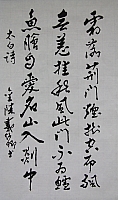 霜落荆門煙樹空布帆
無恙挂秋風此行不為鱸
魚鱠自愛名山入剡中
太白詩